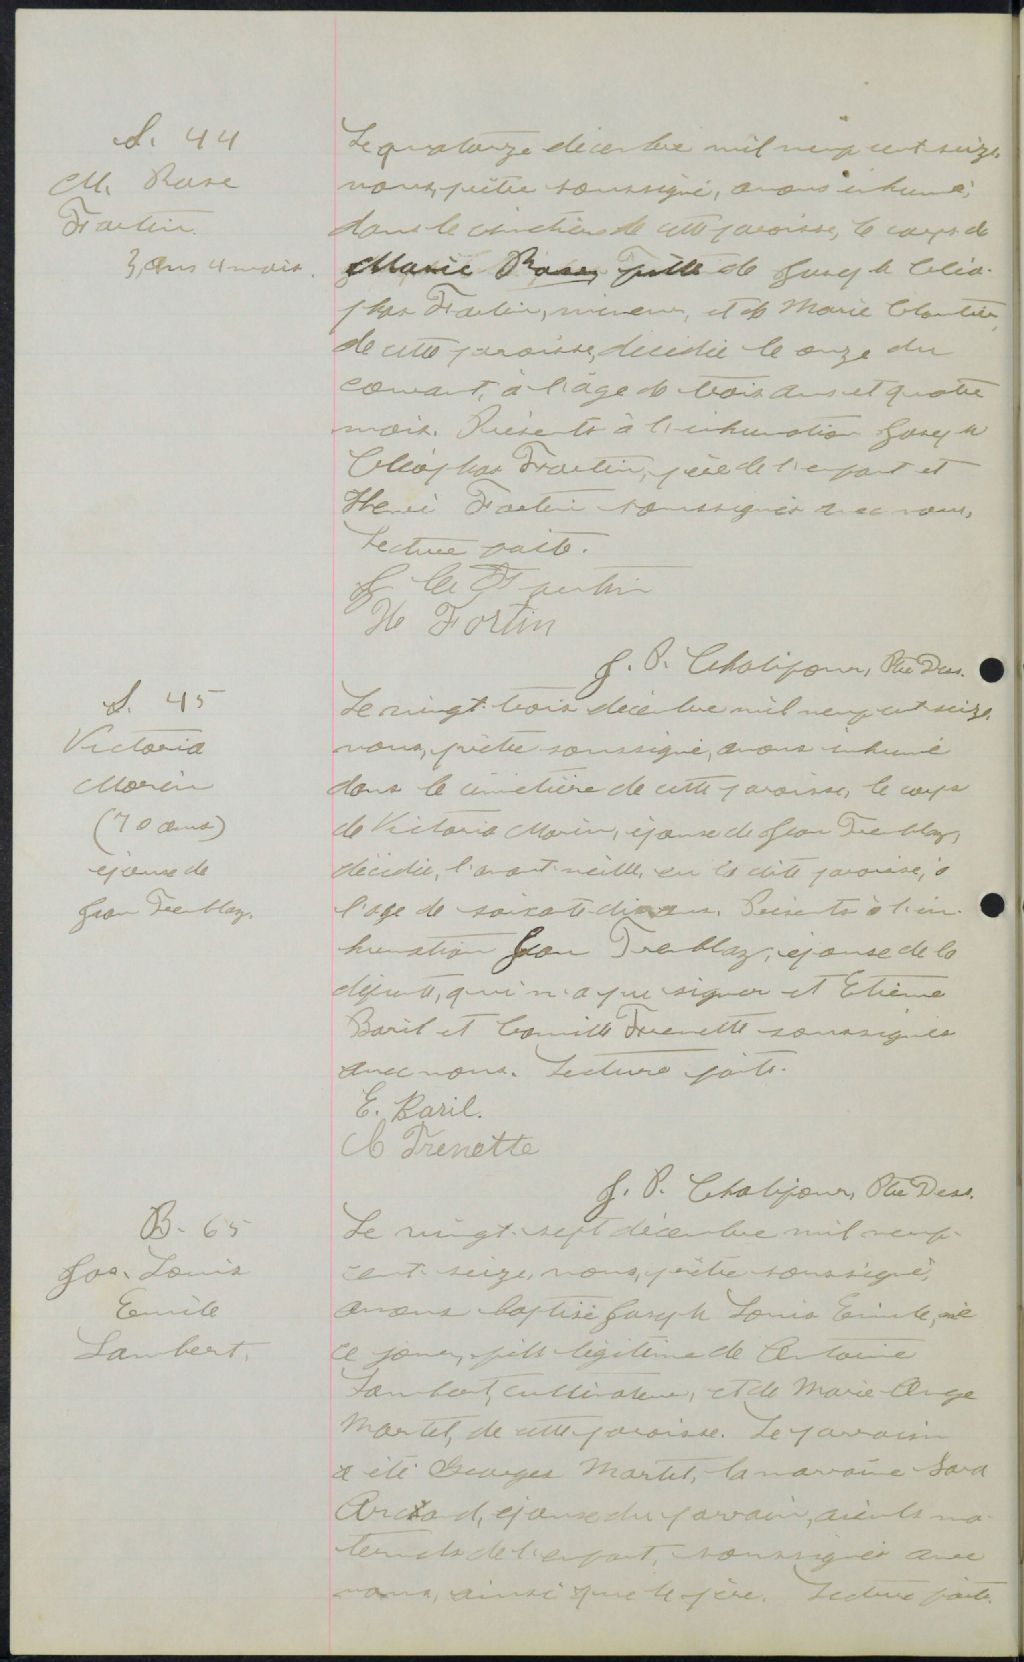 S. 44
M. Rose
Fortin.
3 ans 4 mois.
Le quatorze décembre mil neuf cent seize,
nous, prêtre soussigné, avons inhumé,
dans le cimetière de cette paroisse, le corps de
Marie Rose, fille de Joseph Cléo-
phas Fortin, mineur, et de Marie Cloutier,
de cette paroisse, décédée le onze du
courant, à l'âge de trois ans et quatre
mois. Présents à l'inhumation Joseph
Cléophas Fortin, père de l'enfant et
Henri Fortin soussignés avec nous,
Lecture faite.
J Cle Fortin
H Fortin
J. P. Chabifour, Ptre Dess.
S. 45
Victoria
Morin
(70 ans)
épouse de
Jean Tremblay.
Le vingt-trois décembre mil neuf cent seize,
nous, prêtre soussigné, avons inhumé
dans le cimetière de cette paroisse, le corps
de Victoria Morin, épouse de Jean Tremblay,
décédée, l'avant-veille, en la dite paroisse, à
l'âge de soixante-dix ans. Présents à l'in-
humation Jean Tremblay, épouse de la
défunte, qui n'a pu signer et Etienne
Baril et Camille Frenette soussignés
avec nous. Lecture faite.
E. Baril.
C Frenette
J. P. Chabifour, Ptre Dess.
B. 65
Jos. Louis
Emile
Lambert.
Le vingt-sept décembre mil neuf-
cent-seize, nous, prêtre soussigné,
avons baptisé Joseph Louis Emile, né
ce jour, fils légitime de Antoine
Lambert, cultivateur, et de Marie-Ange
Martel, de cette paroisse. Le parrain
a été Georges Martel, la marraine Sara
Arcand, épouse du parrain, aïeuls ma-
ternels de l'enfant, soussignés avec
nous, ainsi que le père. Lecture faite.